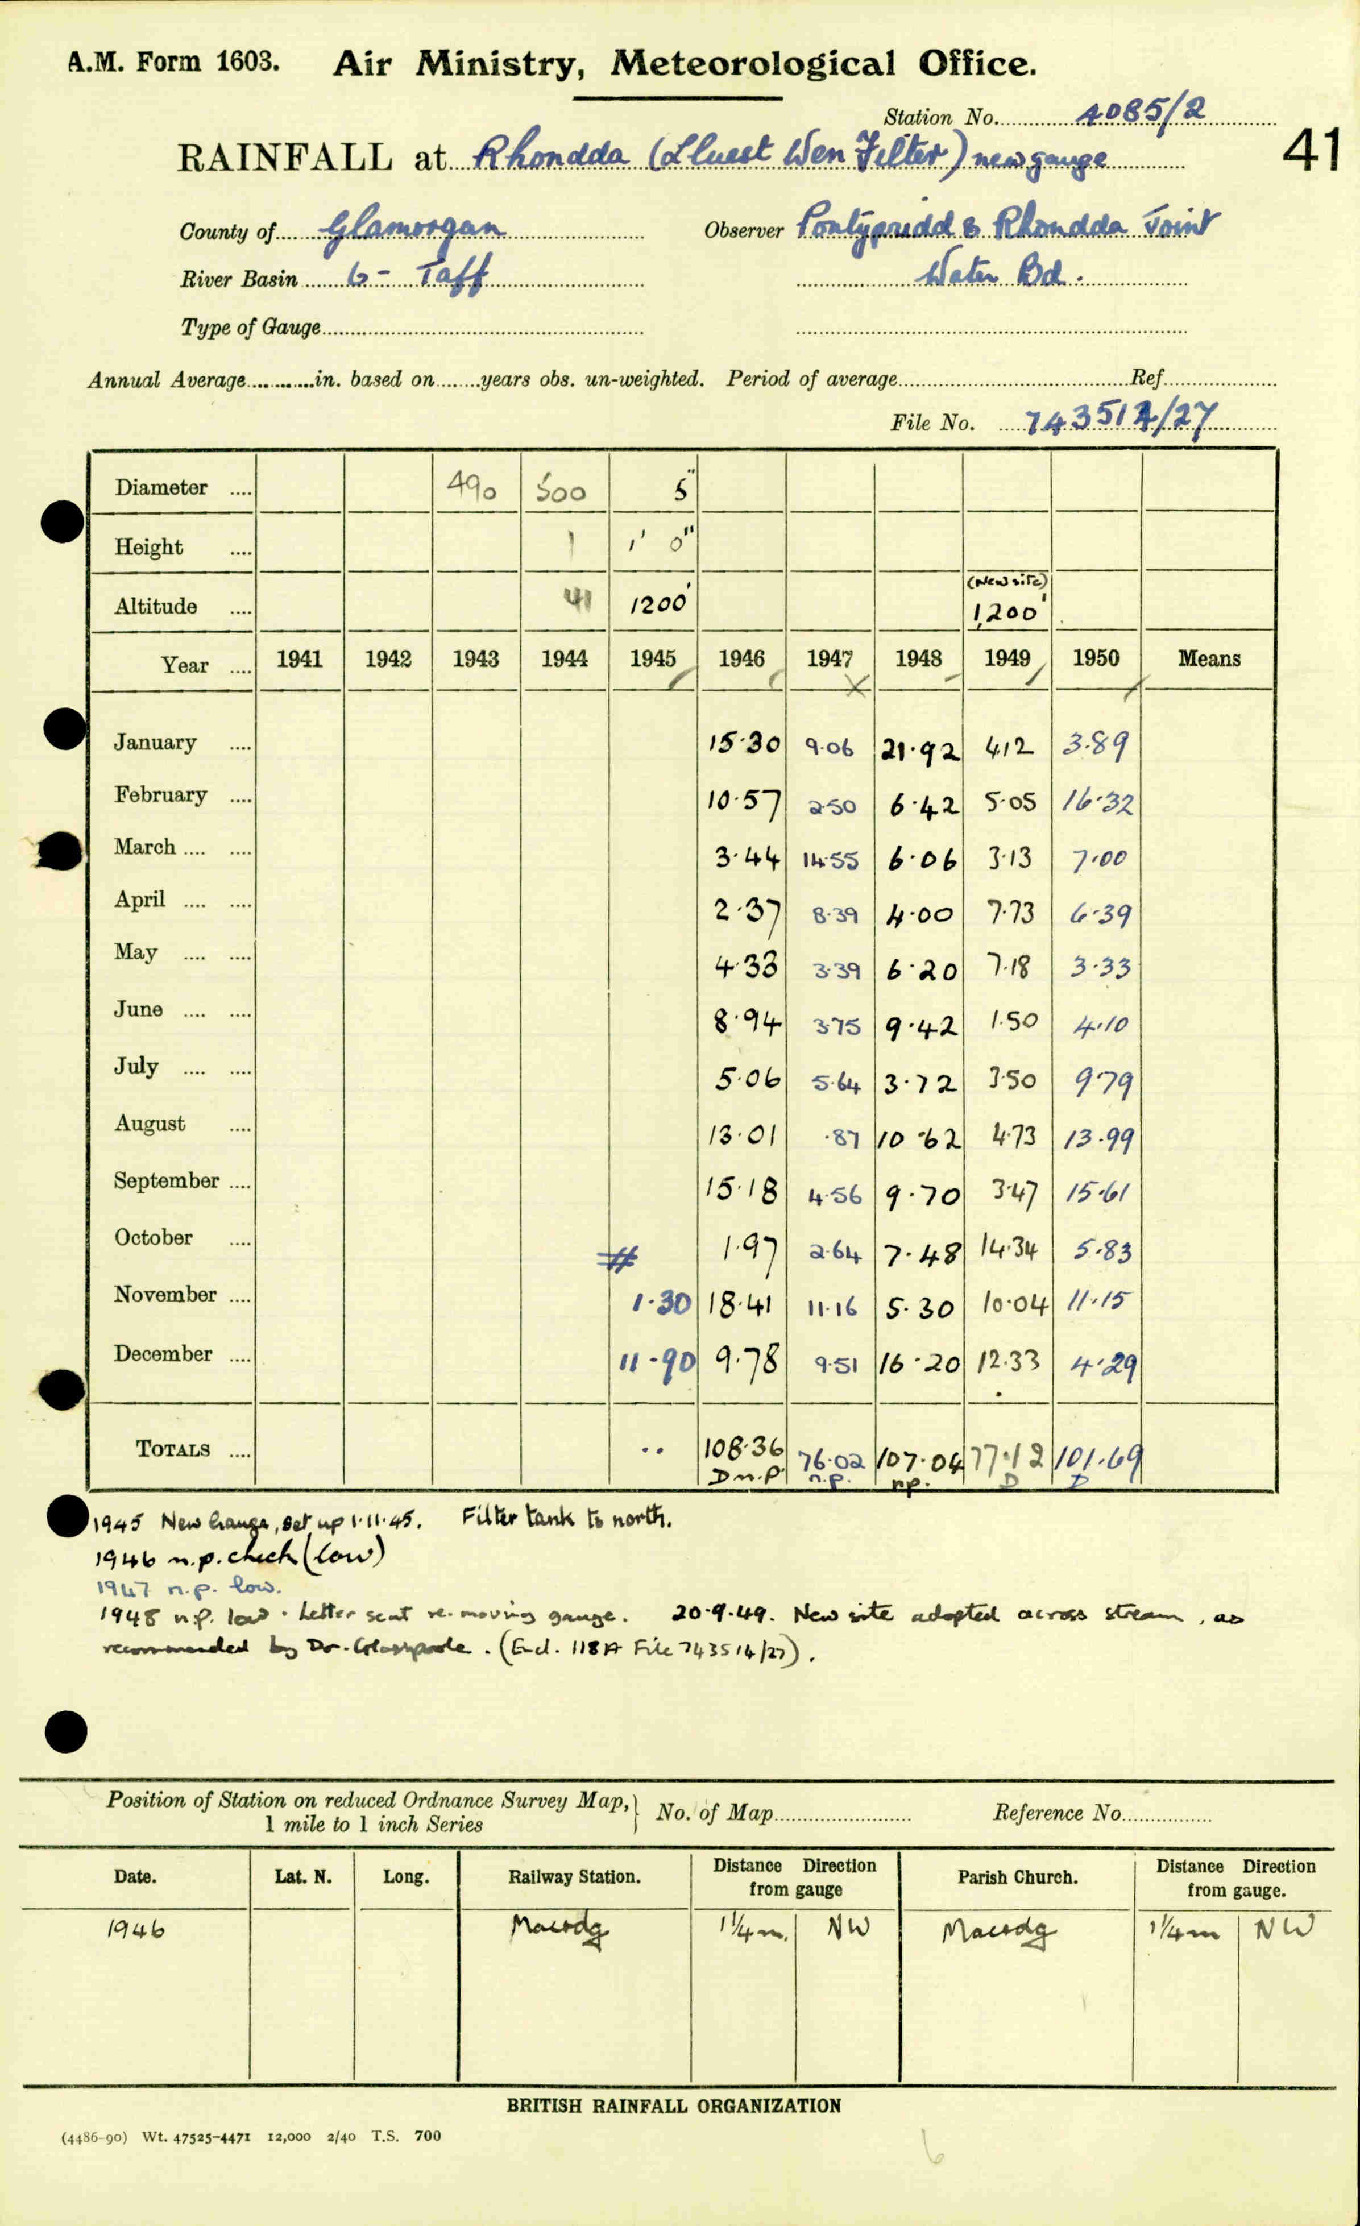 A.M. Form 1603. Air Ministry, Meteorological Office.
Station No. 4085/2
RAINFALL at Rhondda (Lluest Wen Filter) new gauge 41
County of Glamorgan Observer Pontypridd & Rhondda Joint
River Basin 6 - Taff Water Bd.
Type of Gauge
Annual Average in. based on years obs. un-weighted. Period of average Ref.
File No. 743514/27
Diameter 490 500 5"
Height 1 1' 0"
(New site)
Altitude 41 1200' 1,200'
Year 1941 1942 1943 1944 1945 1946 1947 1948 1949 1950 Means
January 15·30 9·06 21·92 4·12 3·89
February 10·57 2·50 6·42 5·05 16·32
March 3·44 14·55 6·06 3·13 7·00
April 2·37 8·39 4·00 7·73 6·39
May 4·33 3·39 6·20 7·18 3·33
June 8·94 3·75 9·42 1·50 4·10
July 5·06 5·64 3·72 3·50 9·79
August 13·01 ·87 10·62 4·73 13·99
September 15·18 4·56 9·70 3·47 15·61
October # 1·97 2·64 7·48 14·34 5·83
November 1·30 18·41 11·16 5·30 10·04 11·15
December 11·90 9·78 9·51 16·20 12·33 4·29
TOTALS .. 108·36 76·02 107·04 77·12 101·69
D n.p. n.p. n.p. D D
1945 New Gauge, set up 1·11·45. Filter tank to north.
1946 n.p. check (low)
1947 n.p. low.
1948 n.p. low. Letter sent re-moving gauge. 20·9·49. New site adopted across stream, as
recommended by Dr. Glasspoole. (Encl. 118A File 743514/27).
Position of Station on reduced Ordnance Survey Map, 1 mile to 1 inch Series No. of Map Reference No.
Date. Lat. N. Long. Railway Station. Distance Direction from gauge Parish Church. Distance Direction from gauge.
1946 Maerdy 1¼m. NW Maerdy 1¼m NW
BRITISH RAINFALL ORGANIZATION
(4486-90) Wt. 47525-4471 12,000 2/40 T.S. 700
6